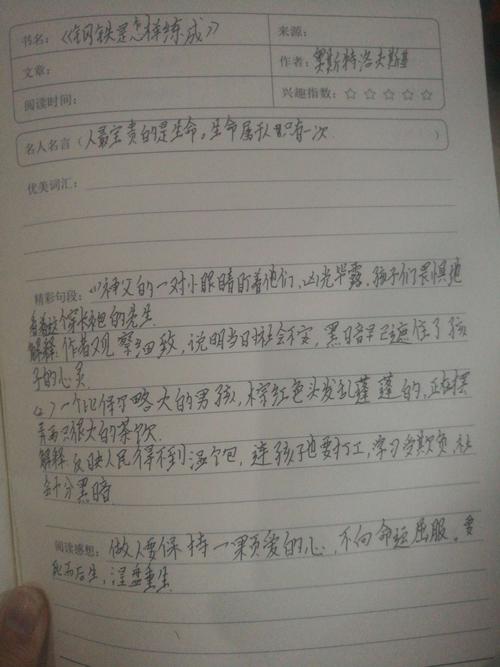 书名：《钢铁是怎样练成》
来源：
文章：
作者：奥斯特洛夫斯基
阅读时间：
兴趣指数：☆ ☆ ☆ ☆ ☆
名人名言（人最宝贵的是生命。生命属于人只有一次）
优美词汇：
精彩句段：(1)神父的一对小眼睛盯着他们，凶光毕露，孩子们畏惧地
看着这个穿长袍的先生
解释：作者观察细致，说明当日社会不安，黑暗早已遮住了孩
子的心灵
(2)一个比保尔略大的男孩，棕红色头发乱蓬蓬的，正在摆
弄两只很大的茶炊
解释：反映人民得不到温饱，连孩子也要打工，
会十分黑暗
阅读感想：做人要保持一颗爱的心，不向命运屈服。要
死而后生，涅盘重生